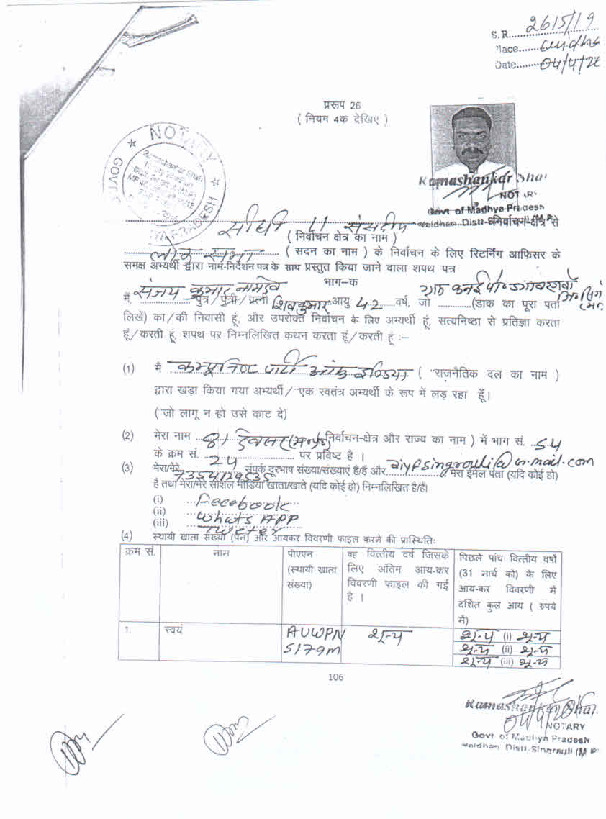 S.R. 2615/19
Place......
Date...... 04/4/
प्ररूप 26
( नियम 4क देखिए )
NOTARY
Ramashankar
NOTARY
Govt of Madhya Pradesh
सीधी 11 संसदीय निर्वाचन-क्षेत्र से
( निर्वाचन क्षेत्र का नाम )
लोक सभा ( सदन का नाम ) के निर्वाचन के लिए रिटर्निंग आफिसर के
समक्ष अभ्यर्थी द्वारा नाम-निर्देशन पत्र के साथ प्रस्तुत किया जाने वाला शपथ पत्र
भाग–क
मैं, संजय कुमार नामदेव पुत्र/पुत्री/पत्नी शिवकुमार आयु 42 वर्ष, जो ............(डाक का पूरा पता
लिखें) का/की निवासी हूं, और उपरोक्त निर्वाचन के लिए अभ्यर्थी हूं, सत्यनिष्ठा से प्रतिज्ञा करता
हूँ/करती हूं, शपथ पर निम्नलिखित कथन करता हूं/करती हूं :–
(1) मैं कम्युनिस्ट पार्टी ऑफ इण्डिया ( राजनैतिक दल का नाम )
द्वारा खड़ा किया गया अभ्यर्थी/ एक स्वतंत्र अभ्यर्थी के रूप में लड़ रहा हूँ।
(जो लागू न हो उसे काट दें)
(2) मेरा नाम 81 देवसर निर्वाचन-क्षेत्र और राज्य का नाम ) में भाग सं. 54
के क्रम सं. 24 पर प्रविष्ट है ।
(3) मेरा/मेरे संपर्क दूरभाष संख्या/संख्याएं है/हैं और मेरा ईमेल पता (यदि कोई हो)
है तथा मेरा/मेरे सोशल मीडिया खाता/खाते (यदि कोई हो) निम्नलिखित है/हैं।
(i) Facebook
(ii) Whats APP
(iii) Twitter
(4) स्थायी खाता संख्या (पैन) और आयकर विवरणी फाइल करने की प्रास्थिति:
क्रम सं. नाम पीएएन (स्थायी खाता संख्या) वह वित्तीय वर्ष जिसके लिए अंतिम आय-कर विवरणी फाइल की गई है । पिछले पांच वित्तीय वर्षों (31 मार्च को) के लिए आय-कर विवरणी में दर्शित कुल आय ( रुपये में)
1. स्वयं AUWPN 5179M शून्य शून्य (i) शून्य
शून्य (ii) शून्य
शून्य (iii) शून्य
106
NOTARY
Govt of Madhya Pradesh
Waidhan Distt-Singrauli (M.P.